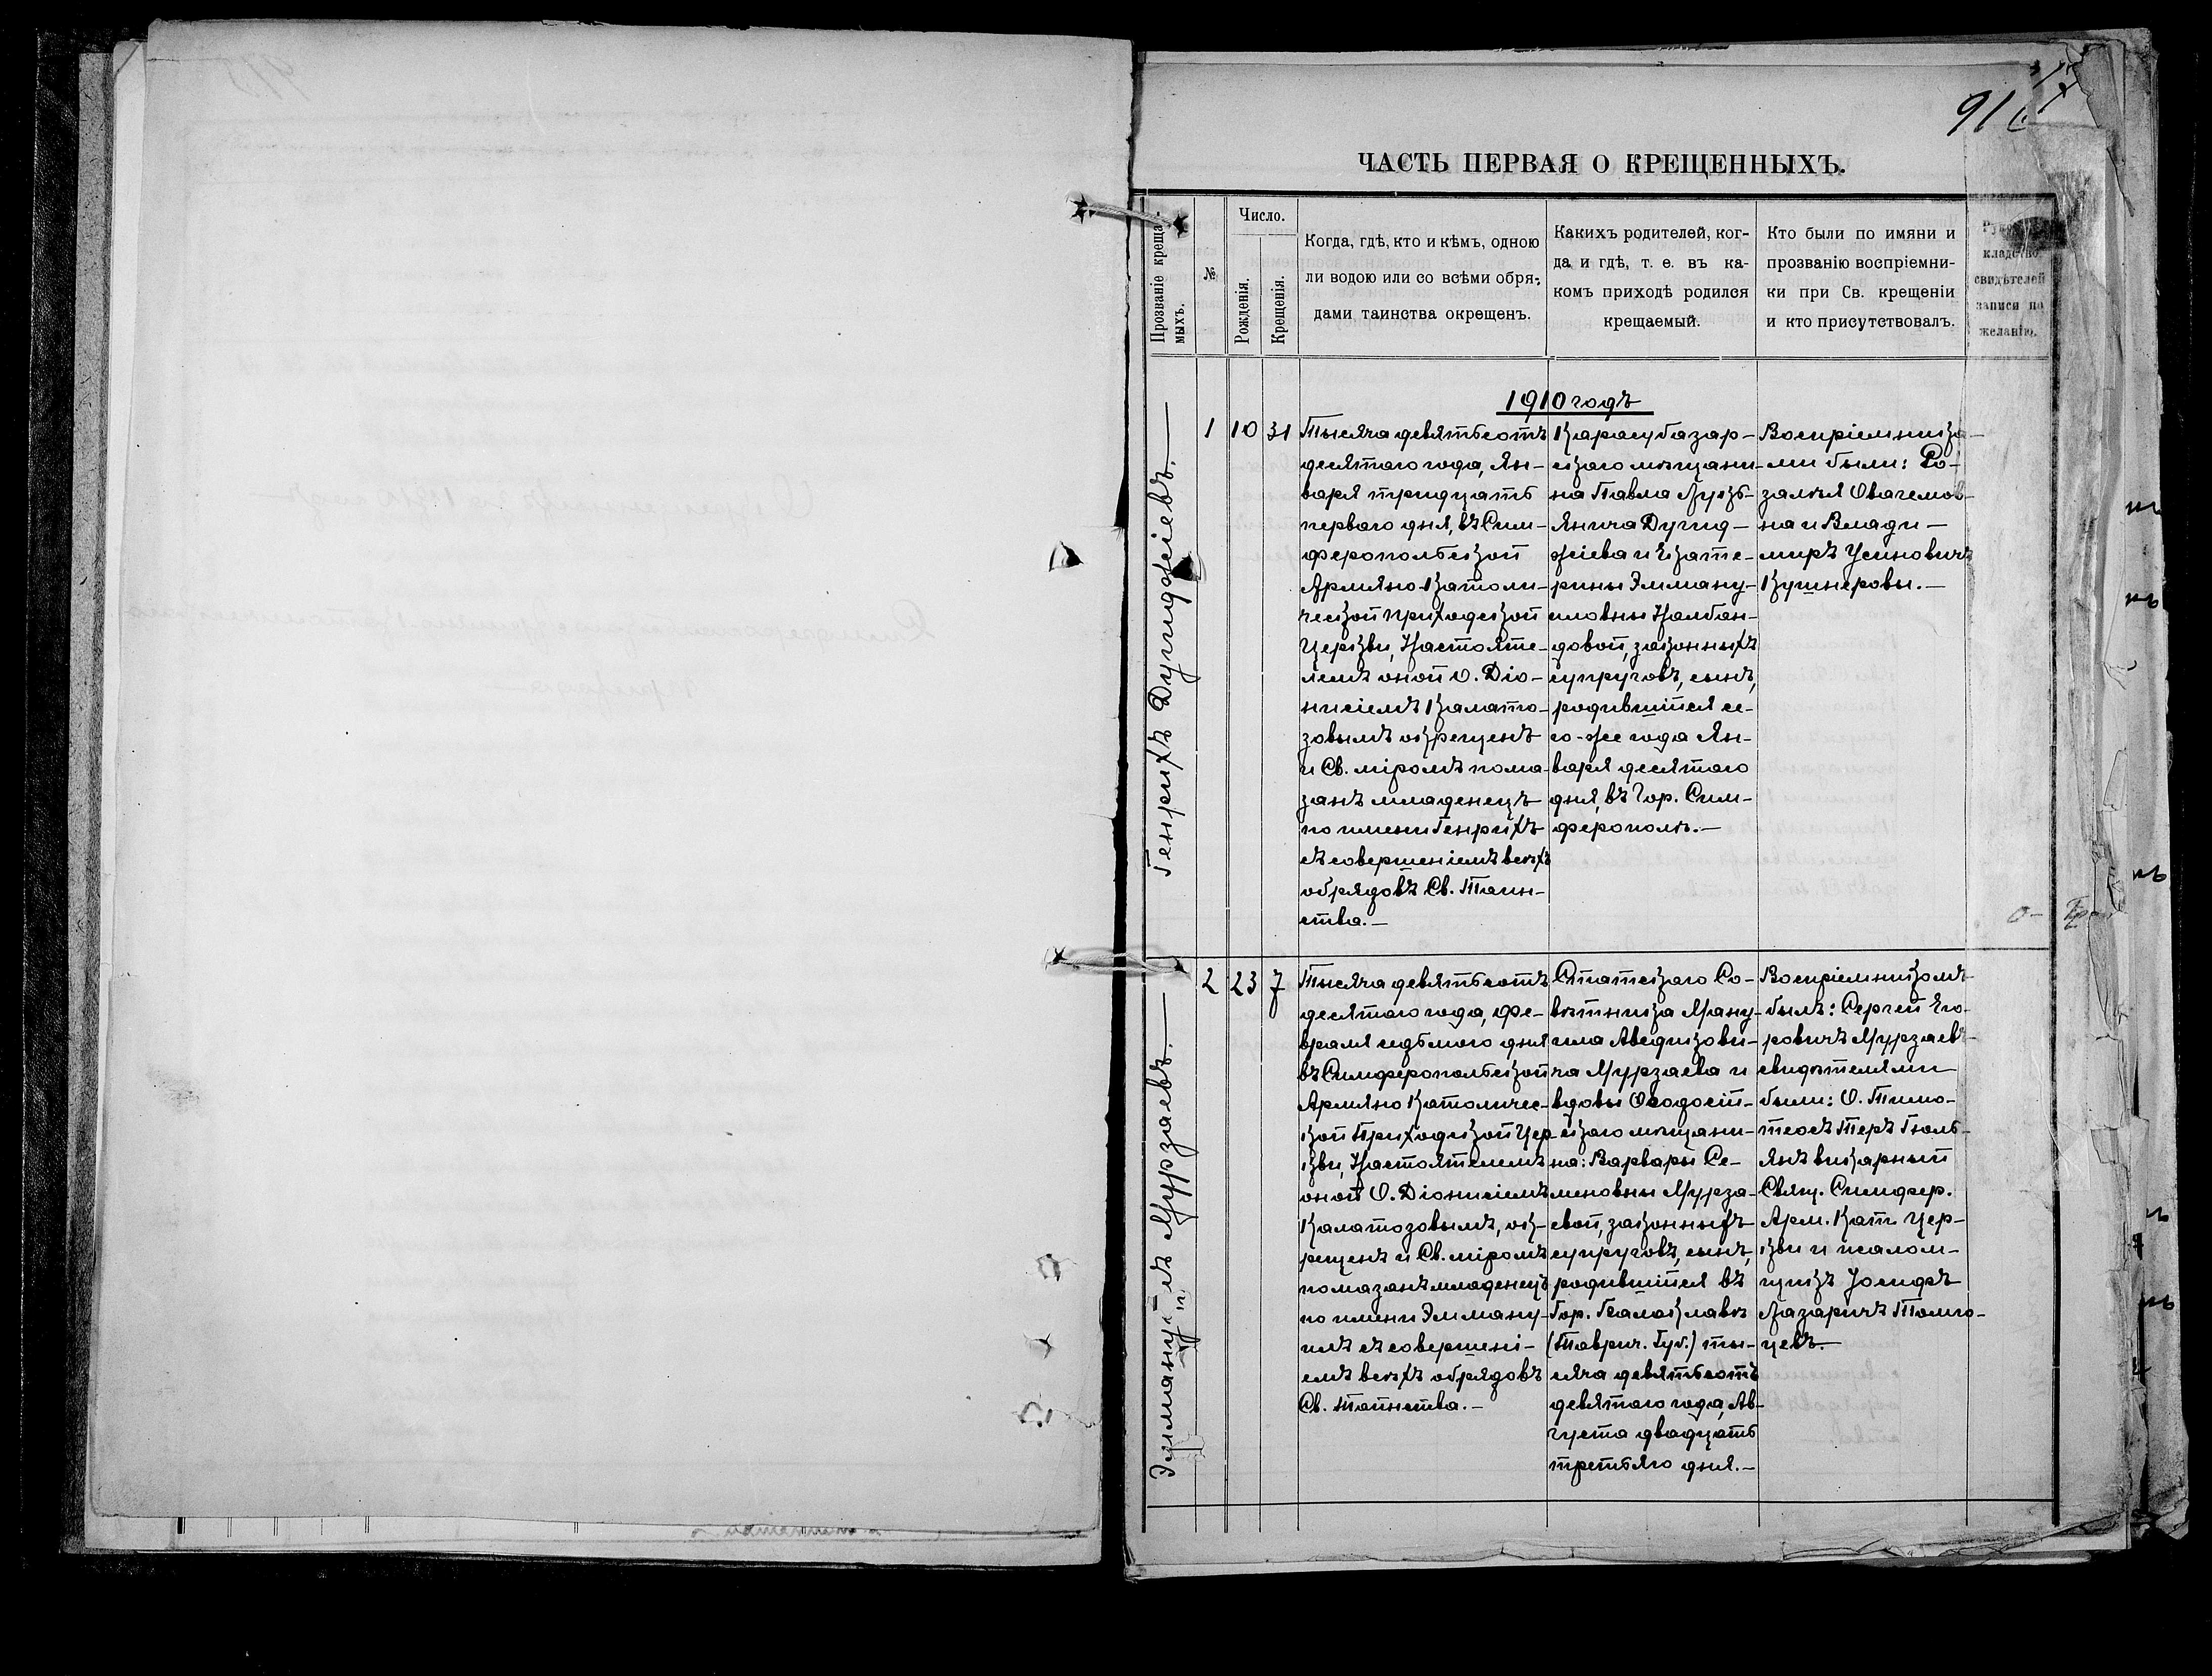 916
17
ЧАСТЬ ПЕРВАЯ О КРЕЩЕННЫХЪ.
Прозваніе креща-
мыхъ.
№
Число.
Рожденія.
Крещенія.
Когда, гдѣ, кто и кѣмъ, одною
ли водою или со всѣми обря-
дами таинства окрещенъ.
Какихъ родителей, ког-
да и гдѣ, т. е. въ ка-
комъ приходѣ родился
крещаемый.
Кто были по имяни и
прозванію воспріемни-
ки при Св. крещеніи
и кто присутствовалъ.
кладство
свидѣтелей
записи по
желанію.
1910 годъ
Генрихъ Дугиджіевъ.—
1 10 31
Тысяча девятьсотъ
десятаго года, Ян-
варя тридцать
перваго дня, въ Сим-
феропольской
Армяно-Католи-
ческой приходской
Церкви, Настояте-
лемъ оной О. Діо-
нисіемъ Калато-
зовымъ окрещенъ
и Св. міромъ пома-
занъ младенецъ
по имени Генрихъ
съ совершеніемъ всѣхъ
обрядовъ Св. Таин-
ства.—
Карасубазар-
скаго мѣщани-
на Павла Лукь-
янича Дугид-
жіева и Екате-
рины Эмману-
иловны Налбан-
довой, законныхъ
супруговъ, сынъ,
родившійся се-
го-же года Ян-
варя десятаго
дня, въ Гор. Сим-
ферополѣ.—
Воспріемника-
ми были: Ро-
залія Овагемов-
на и Влади-
миръ Усиновичъ
Кушнеровы.—
Эммануилъ Мурзаевъ.—
2 23 7
Тысяча девятьсотъ
десятаго года, Фе-
враля седьмого дня
въ Симферопольской
Армяно Католичес-
кой Приходской Цер-
кви, Настоятелемъ
оной О. Діонисіемъ
Калатозовымъ, ок-
рещенъ и Св. міромъ
помазанъ младенецъ
по имени Эмману-
илъ съ совершені-
емъ всѣхъ обрядовъ
Св. Таинства.—
Статскаго Со-
вѣтника Ману-
ила Аведикови-
ча Мурзаева и
вдовы Ѳеодосій-
скаго мѣщани-
на: Варвары Се-
меновны Мурза-
евой, законныхъ
супруговъ, сынъ,
родившійся въ
Гор. Балаклавѣ
(Таврич. Губ.) ты-
сяча девятьсотъ
девятаго года, Ав-
густа двадцать
третьяго дня.—
Воспріемникомъ
былъ: Сергей Его-
ровичъ Мурзаевъ
свидѣтелями
были: О. Тимо-
теосъ Теръ Гюль-
янъ викарный
Свящ. Симфер.
Арм. Кат. Цер-
кви и псалом-
щикъ Іосифъ
Лазаричъ Томго-
цевъ.—